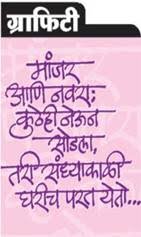 ग्राफिटी
मांजर
आणि नवरा;
कुठेही नेऊन
सोडला,
तरी संध्याकाळी
घरीच परत येतो...